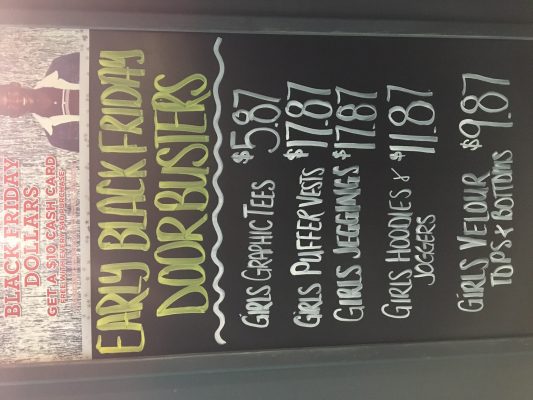 BLACK FRIDAY
DOLLARS
GET A $10 CASH CARD
EARLY BLACK FRIDAY
DOOR BUSTERS
GIRLS GRAPHIC TEES $5.87
GIRLS PUFFER VESTS $17.87
GIRLS JEGGINGS $17.87
GIRLS HOODIES & $11.87
JOGGERS
GIRLS VELOUR $9.87
TOPS & BOTTOMS